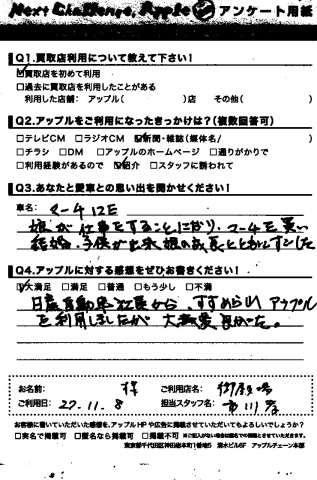 Next Challenge, Apple アンケート用紙
Q1.買取店利用について教えて下さい!
☑買取店を初めて利用
□過去に買取店を利用したことがある
利用した店舗: アップル( )店 その他( )
Q2.アップルをご利用になったきっかけは?(複数回答可)
□テレビCM □ラジオCM ☑新聞・雑誌(媒体名/ )
□チラシ □DM □アップルのホームページ □通りがかりで
□利用経験があるので ☑紹介 □スタッフに誘われて
Q3.あなたと愛車との思い出をお聞かせください!
車名: マーチ12E
娘が仕事をすることになり、マーチを買い
結婚、子供が出来 娘の成長とともにすごした
Q4.アップルに対する感想をぜひお書きください!
☑大満足 □満足 □普通 □もう少し □不満
日産自動車 社長から、すすめられ アップル
を利用しましたが 大変良かった。
お名前: 様 ご利用店名:
ご利用日: 27.11.8 担当スタッフ名: 市川
お客様に書いていただいた感想を、アップルHPや広告に掲載させていただいてもよろしいでしょうか?
□実名で掲載可 □匿名なら掲載可 □掲載不可 ※ご記入がない場合は匿名での掲載とさせていただきます。
東京都千代田区神田松本町1番地5 清水ビル6F アップルチェーン本部